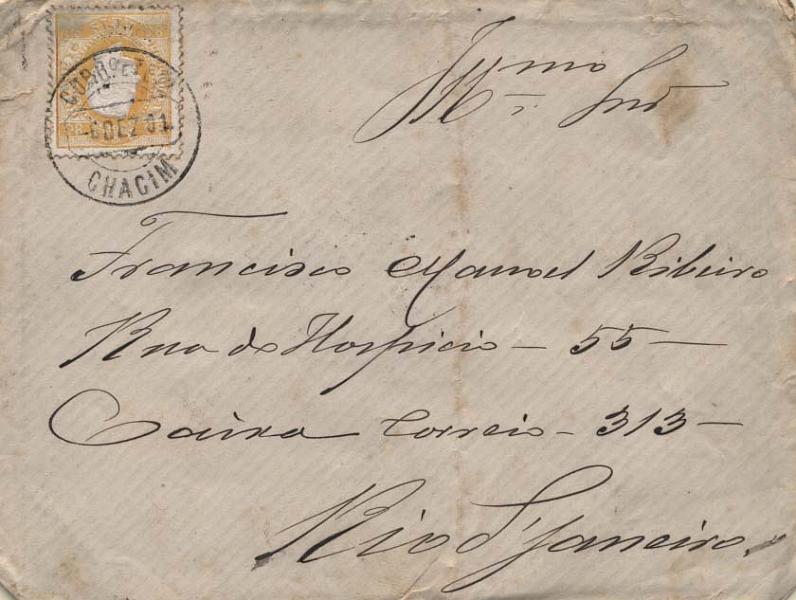 CORRO E TEL
6 DEZ 91
CHACIM
Illmo Snr
Francisco Manoel Ribeiro
Rua do Hospicio — 55 —
Caixa Correio — 313 —
Rio d'Janeiro